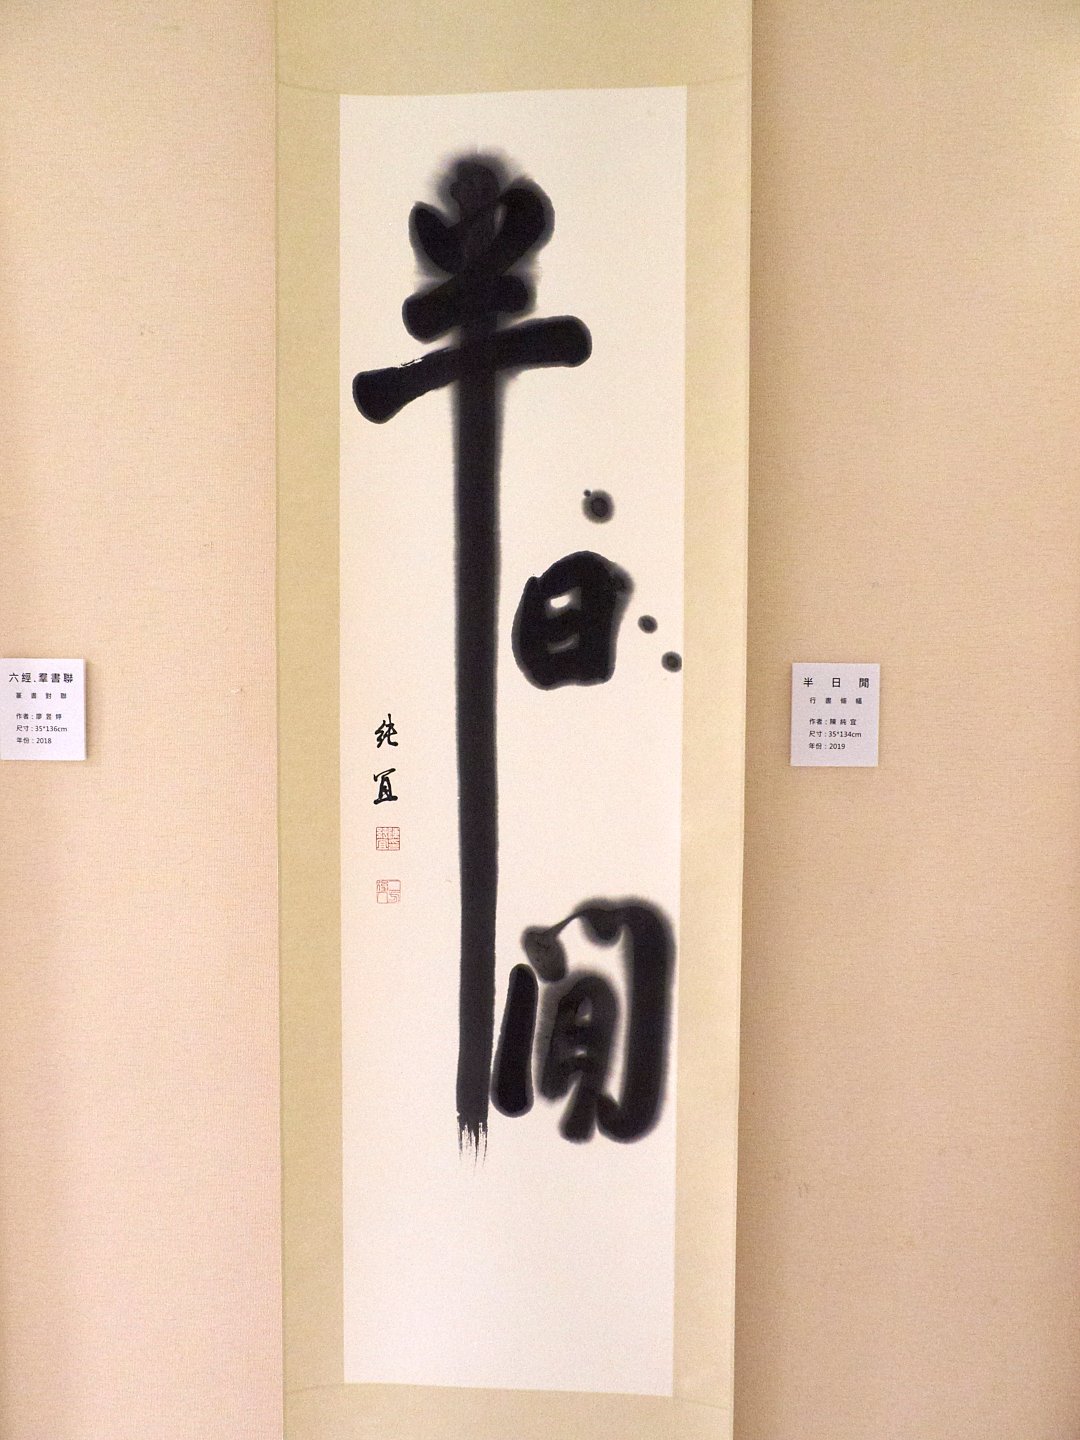 半日閒
純宜
六經.羣書聯
篆書對聯
作者：廖昱婷
尺寸：35*136cm
年份：2018
半日閒
行書條幅
作者：陳純宜
尺寸：35*134cm
年份：2019